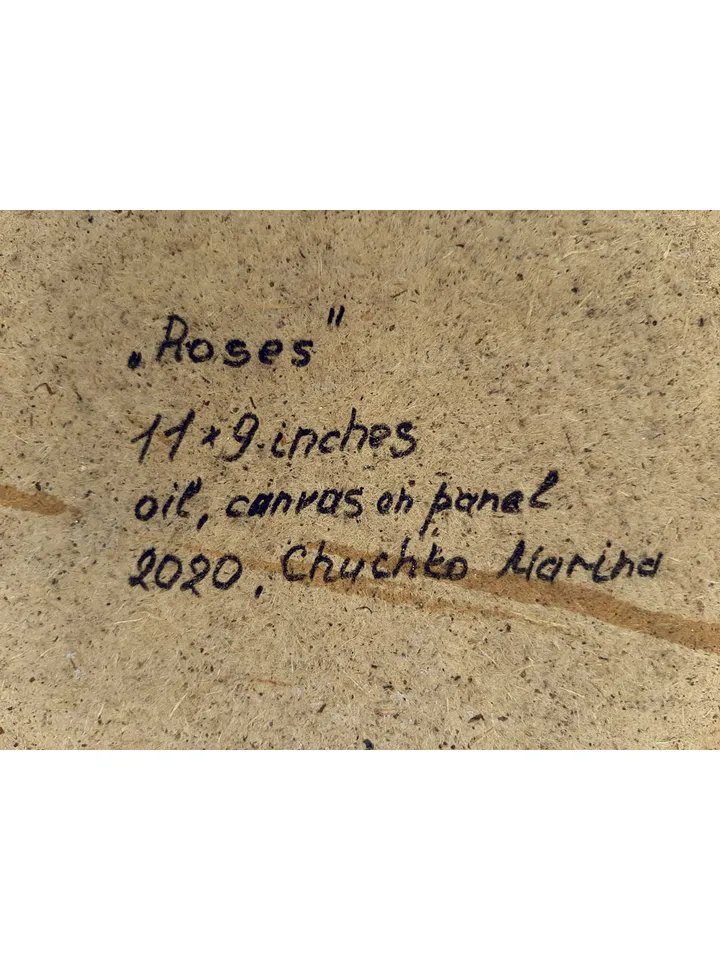 „Roses"
11 × 9 inches
oil, canvas on panel
2020, Chuchko Marina